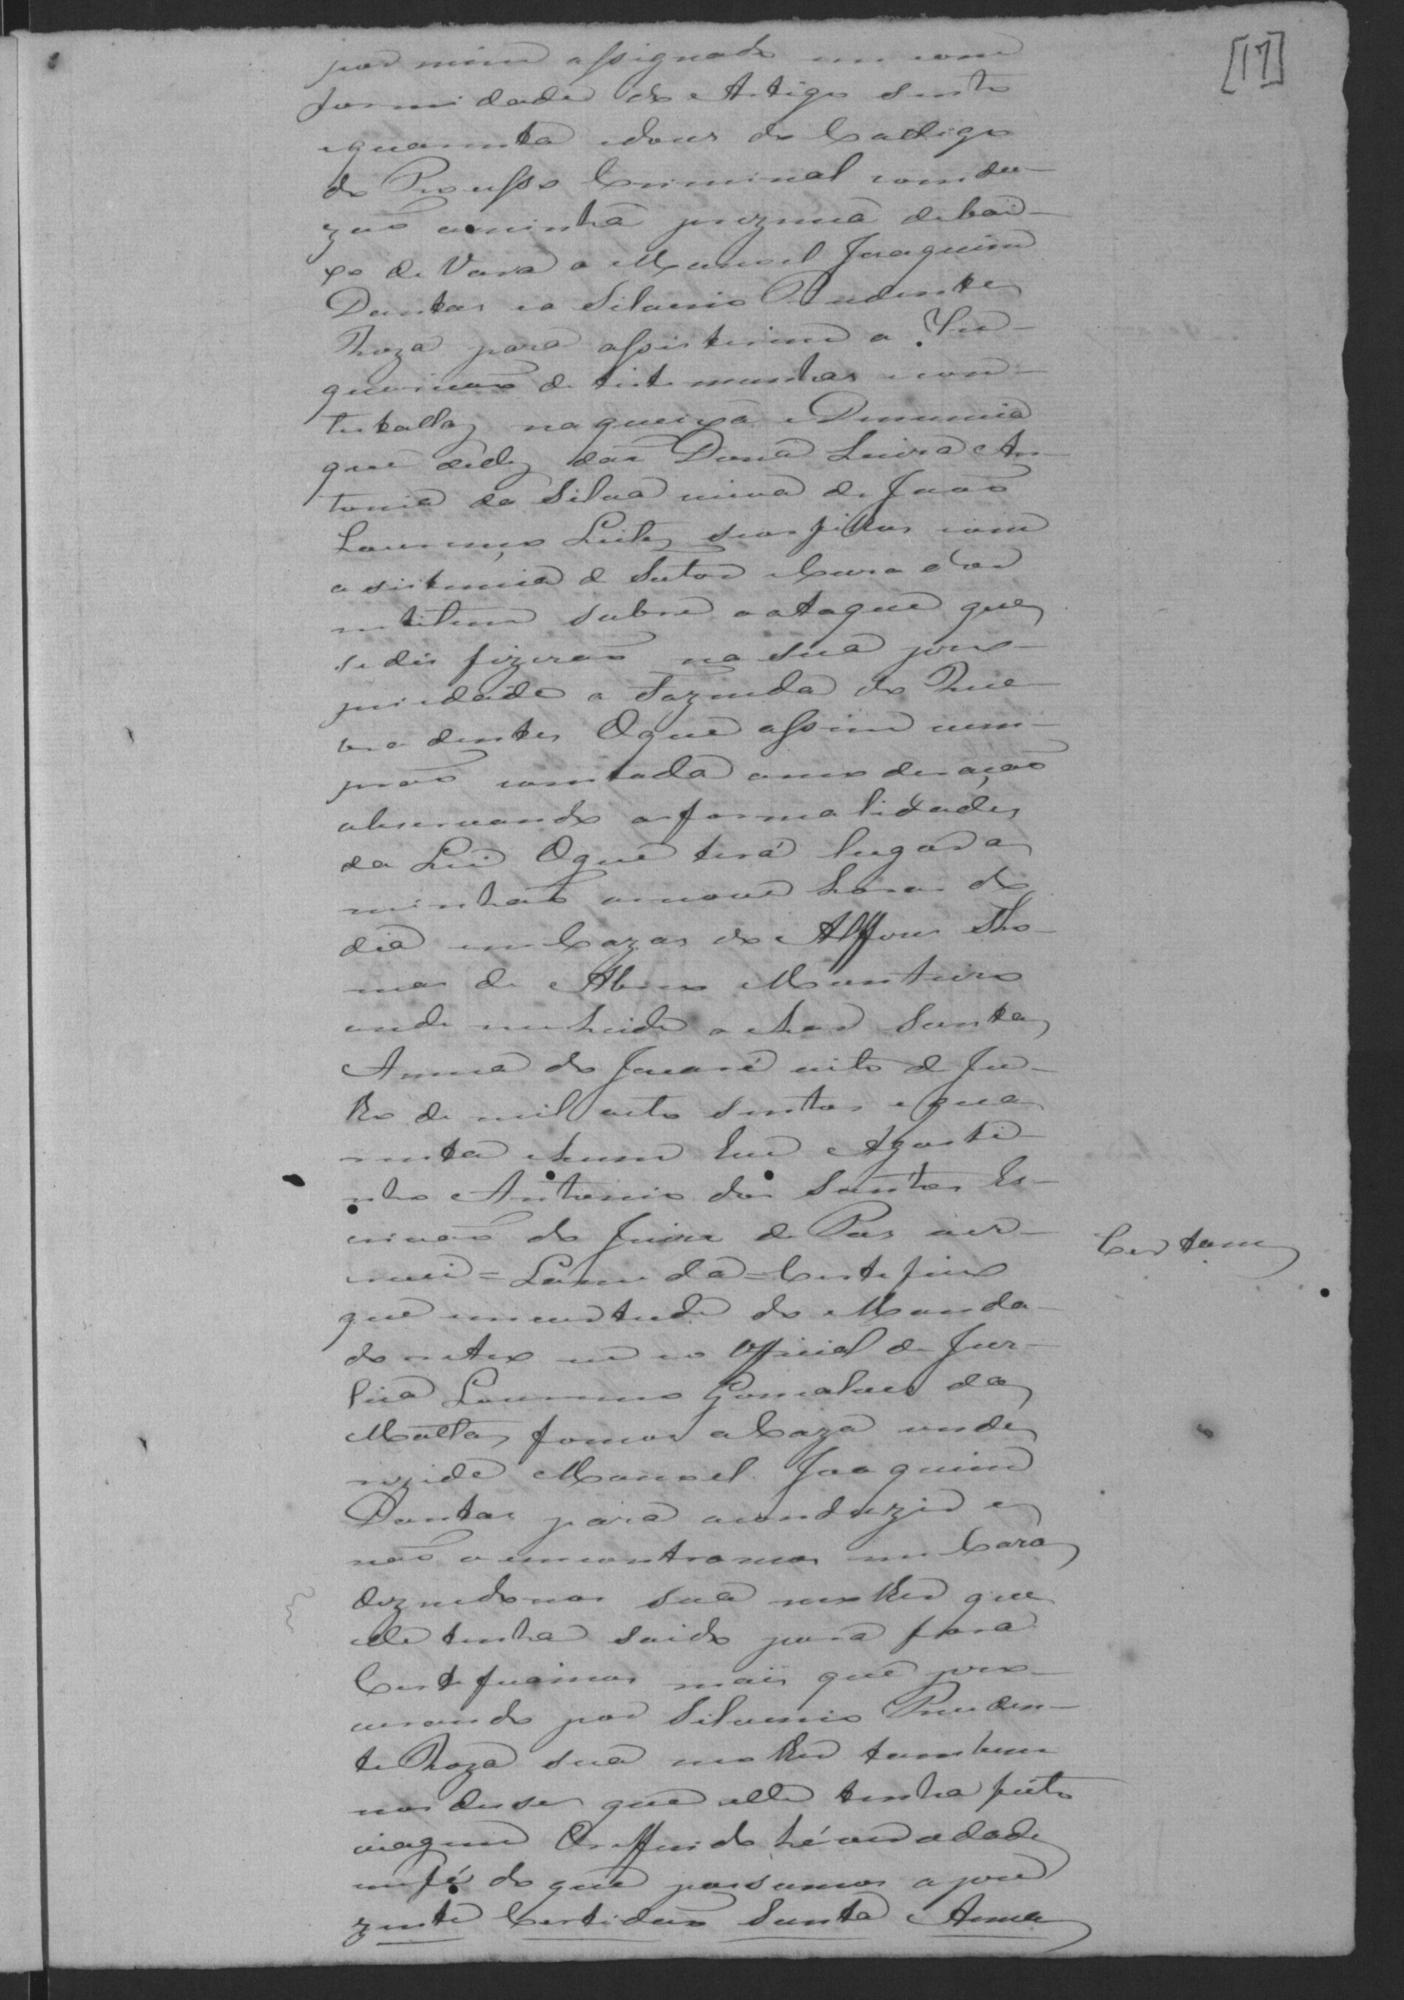 [17]
por mim assignado em com
formidade do Artigo sento
equarenta edous do Codigo
do Processo Criminal condu-
zão aminha prezença debai-
xo de Vara a Manoel Joaquim
Dantas eo Silverio Prudente
Roza para assisterem a In-
quirição de testemunhas
na queixa e Denuncia
que dar Dona Luiza An-
tonia da Silva viuva de João
Lourenço Leite seos filhos com
asistencia de Tutor e Curador
sobre o ataque que
se dis fizerão na sua pro-
priedade a Fazenda do Que-
bra dentes O que assim cum-
prão com toda a moderação
observando as formalidades
da Lei O que terá lugar a
minhã as nove horas do
dia em Cazas do Alferes Tho-
mas de Abreo Monteiro
onde me heide achar Santa
Anna do Jacaré oito de Ju-
lho de mil oito sentos equa
renta ehum Eu Agosti-
nho Antonio dos Santos Es-
crivão do Juiz de Pas
= Lacerda = Certefico
que em vertude do Manda-
do retro eu eo Official de Jus-
tiça Lourenço Gonsalves da
Matta fomos a Caza onde
rezide Manoel Joaquim
Dantas para oconduzir e
não o encontramos em Caza
dizendonos sua molher que
elle tinha saido para fora
Certeficamos mais que pro-
curando por Silverio Pruden-
te Roza sua molher tambem
nos disse que elle tinha feito
viagem O refferido hé verdade
em fé do que passamos a pre
zente Certidão Santa Anna
Certam